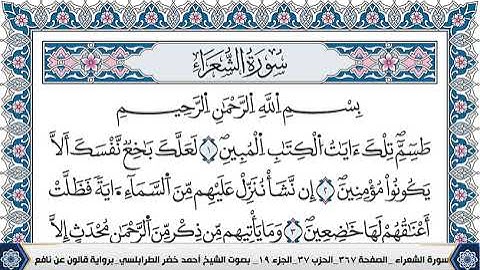 سُورَةُ الشُّعَرَاءِ
بِسْمِ اللَّهِ الرَّحْمَٰنِ الرَّحِيمِ
طَسِٓمِّٓ تِلْكَ ءَايَٰتُ اُ۬لْكِتَٰبِ اِ۬لْمُبِينِۖ ١ لَعَلَّكَ بَٰخِعٞ نَّفْسَكَ أَلَّا
يَكُونُواْ مُؤْمِنِينَۖ ٢ إِن نَّشَأْ نُنَزِّلْ عَلَيْهِم مِّنَ اَ۬لسَّمَآءِ ءَايَةٗ فَظَلَّتْ
أَعْنَٰقُهُمْ لَهَا خَٰضِعِينَۖ ٣ وَمَا يَأْتِيهِم مِّن ذِكْرٖ مِّنَ اَ۬لرَّحْمَٰنِ مُحْدَثٍ إِلَّا
سورة الشعراء _ الصفحة ٣٦٧_ الحزب ٣٧_ الجزء ١٩ _ بصوت الشيخ أحمد خضر الطرابلسي _ برواية قالون عن نافع